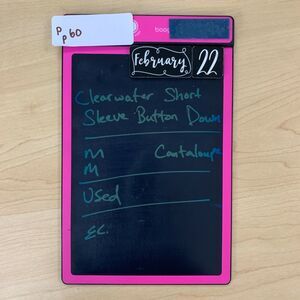 P
P 60
boog
February 22
Clearwater Short
Sleeve Button Down
M Cantaloupe
M
Used
EC.